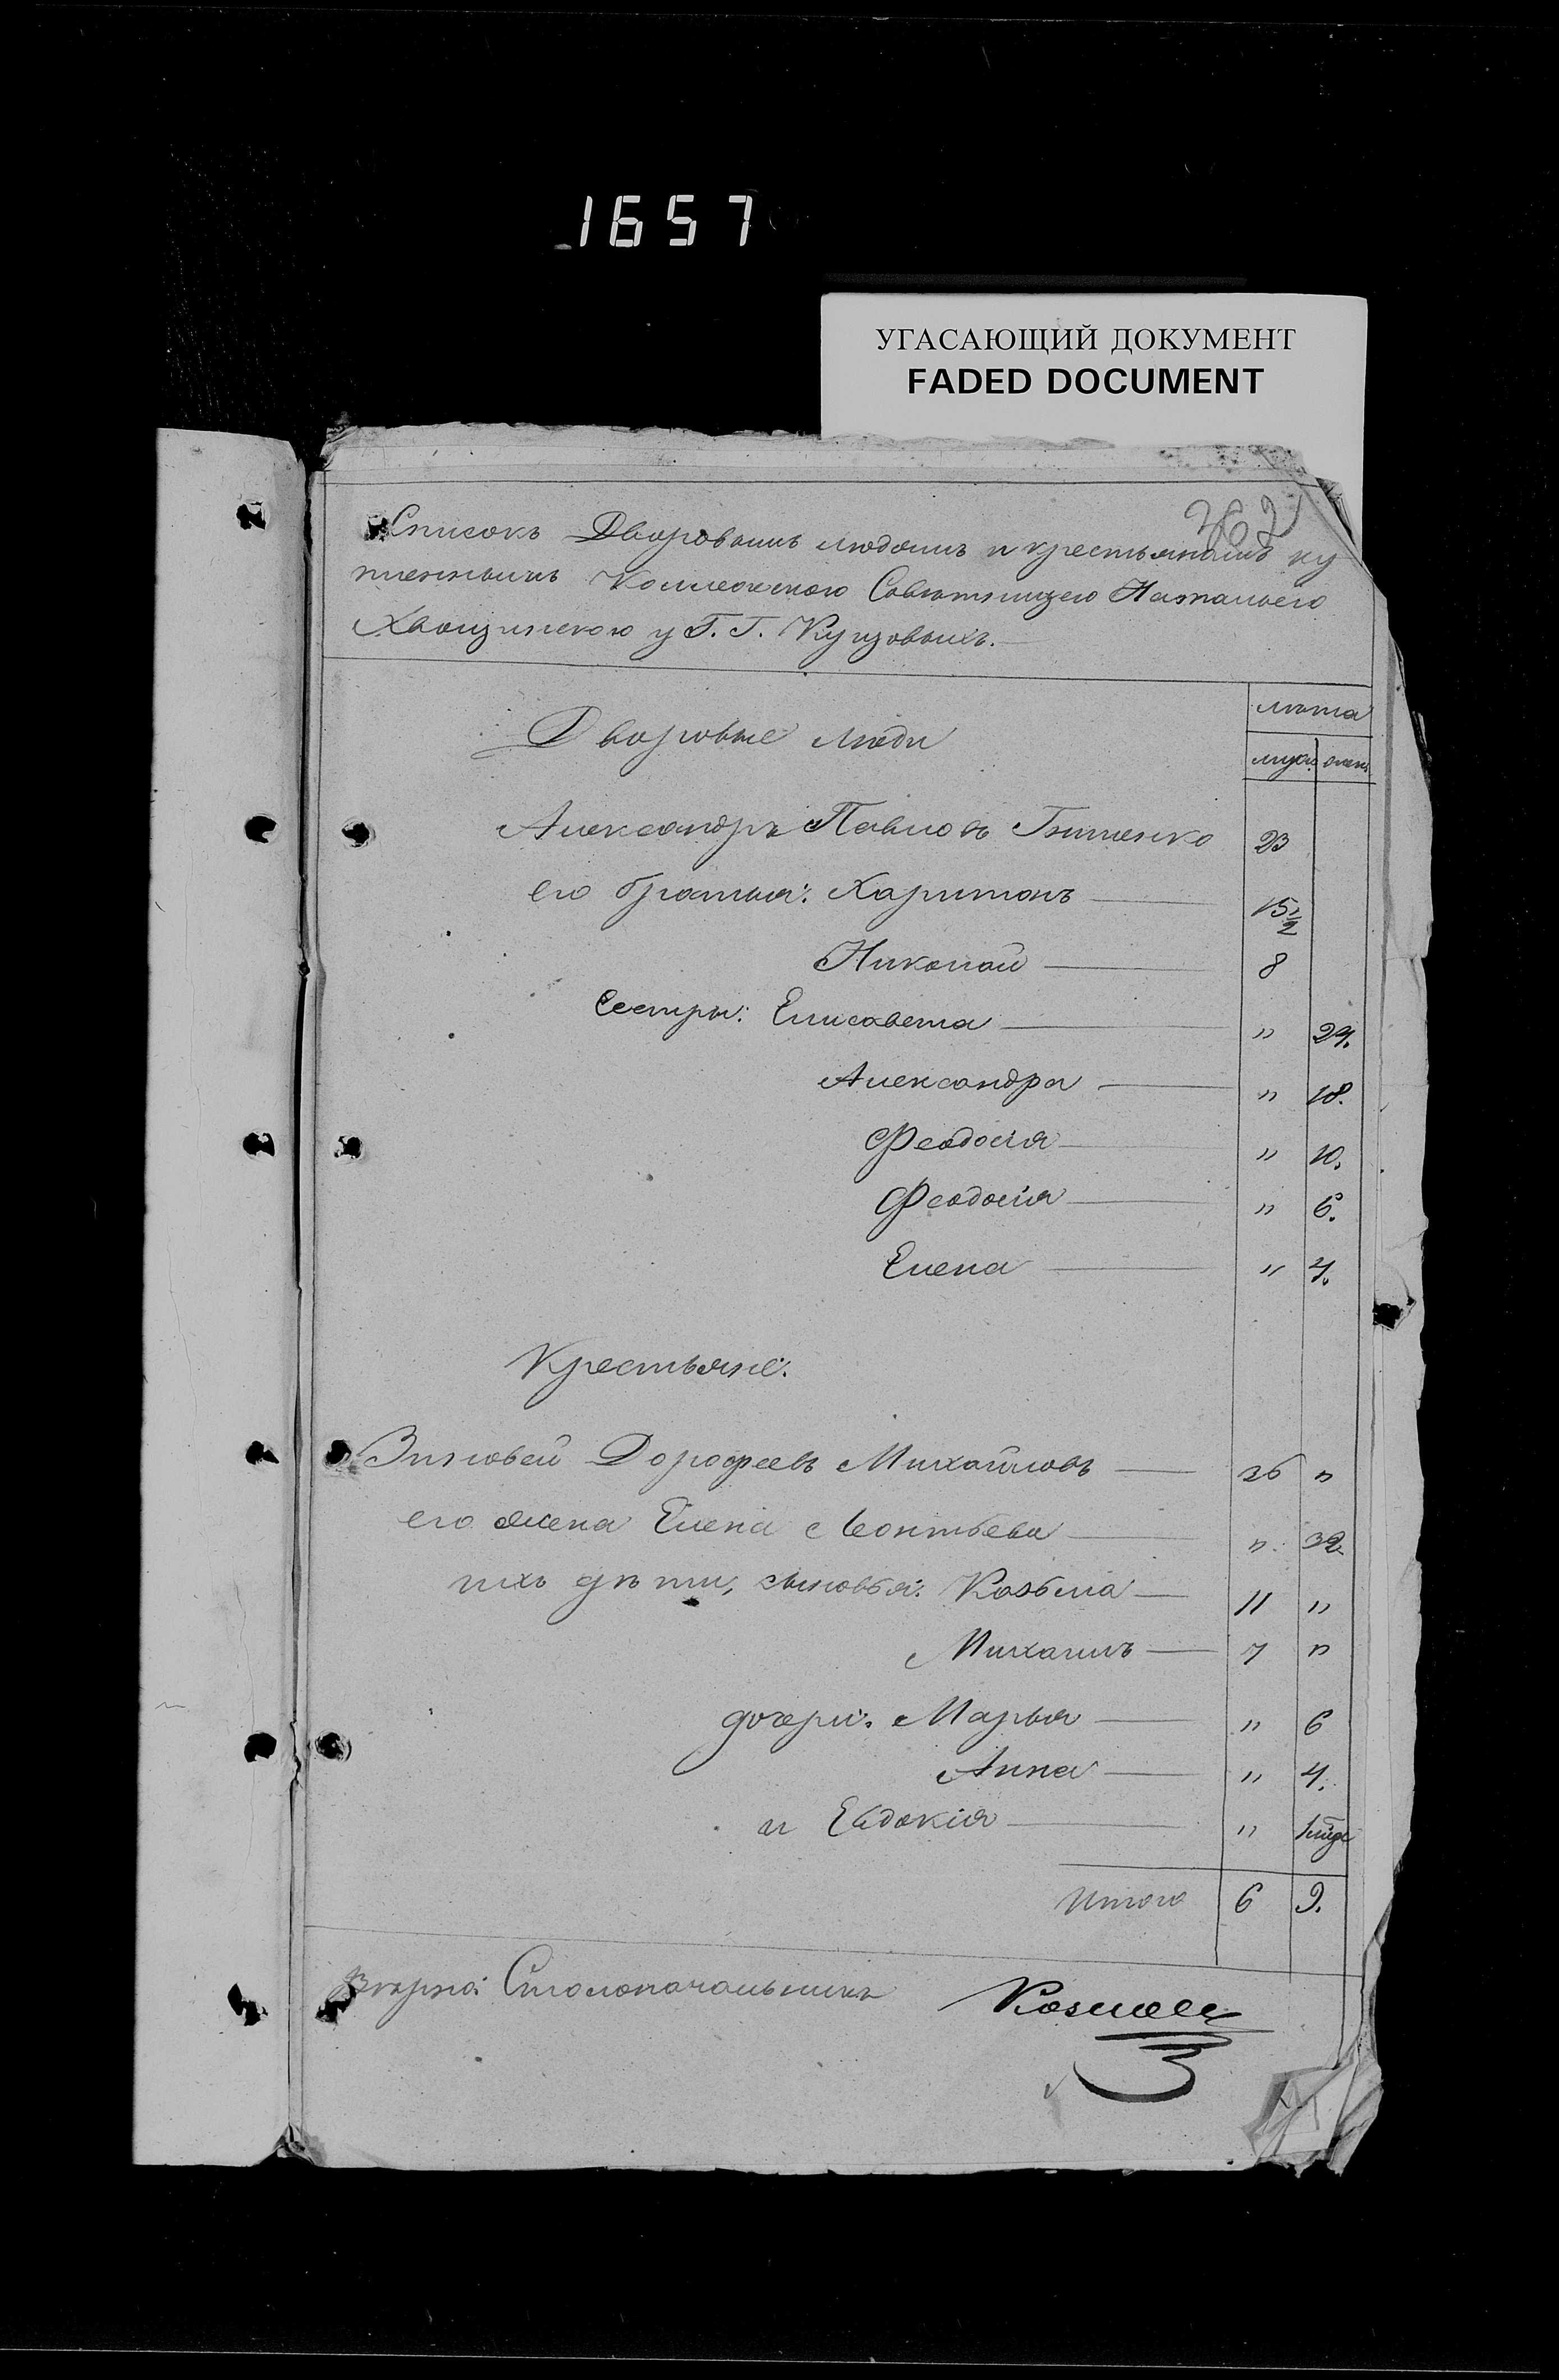 1657
УГАСАЮЩИЙ ДОКУМЕНТ
FADED DOCUMENT
262
Списокъ Дворовымъ людямъ и крестьянамъ ку
пленнымъ Коллежскою Совѣтницею Натальею
Хвощинскою у Г. Г. Кунцовыхъ.
лѣта
Дворовые люди
муж. женс.
Александръ Павловъ 23
его братья: Харитонъ 15 1/2
Николай 8
Сестры: Елисавета " 24.
Александра " 18.
Феодосія " 10.
Феодосія " 6.
Елена " 4.
Крестьяне:
Зиновей Дорофеевъ Михайловъ 36 "
его жена Елена Леонтьева " 32
ихъ дѣти, сыновья: Козьма 11 "
Михаилъ 7 "
дочери: Марья " 6
Анна " 4.
и Евдокія "
Итого 6 9.
Вѣрно: Столоначальникъ